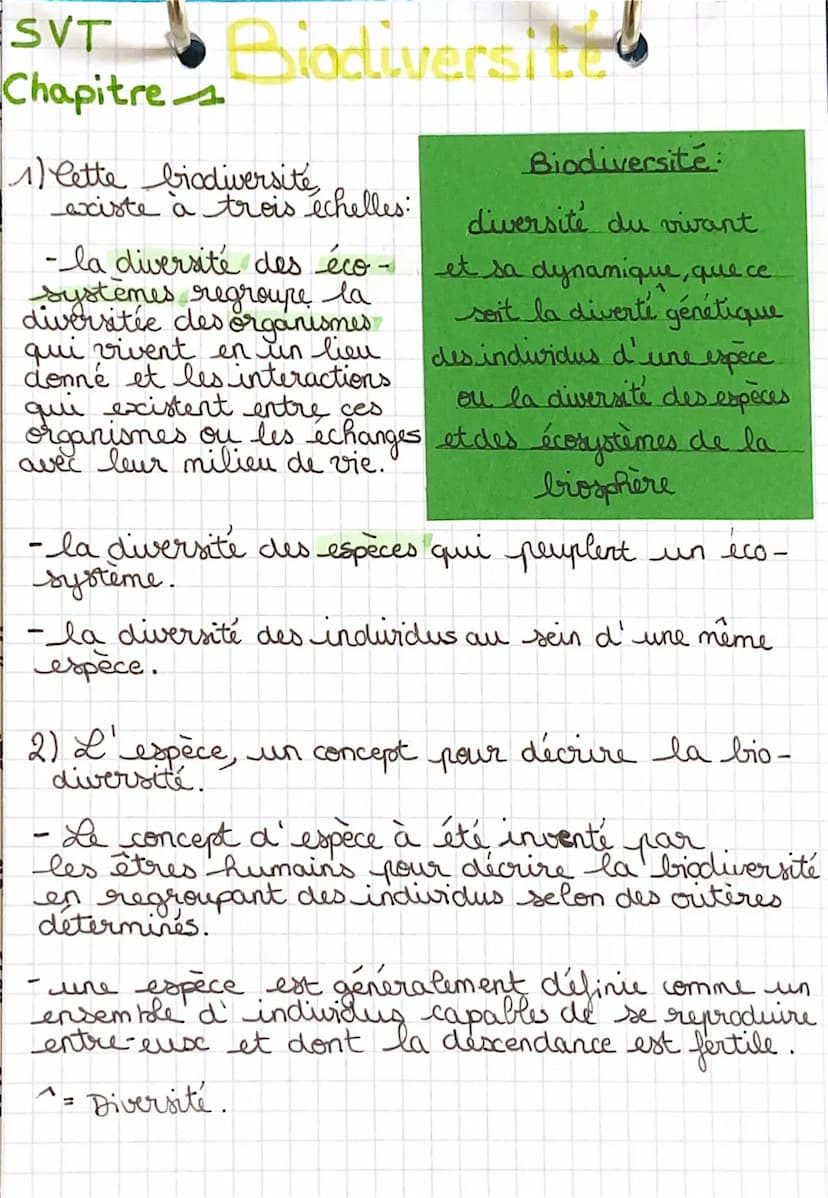 SVT
Chapitre 1
Biodiversité
1) Cette biodiversité
existe à trois échelles:
- la diversité des éco-
systèmes regroupe la
diversitée des organismes
qui vivent en un lieu
donné et les interactions
qui existent entre ces
organismes ou les échanges
avec leur milieu de vie.
Biodiversité:
diversité du vivant
et sa dynamique, que ce
soit la diverté ^ génétique
des individus d'une espèce
ou la diversité des espèces
et des écosystèmes de la
biosphère
- la diversité des espèces qui peuplent un éco-
système.
- la diversité des individus au sein d'une même
espèce.
2) L'espèce, un concept pour décrire la bio-
diversité.
- Le concept d'espèce à été inventé par
les êtres humains pour décrire la biodiversité
en regroupant des individus selon des critères
déterminés.
- une espèce est généralement définie comme un
ensemble d'individus capables de se reproduire
entre-eux et dont la descendance est fertile.
^ = Diversité.